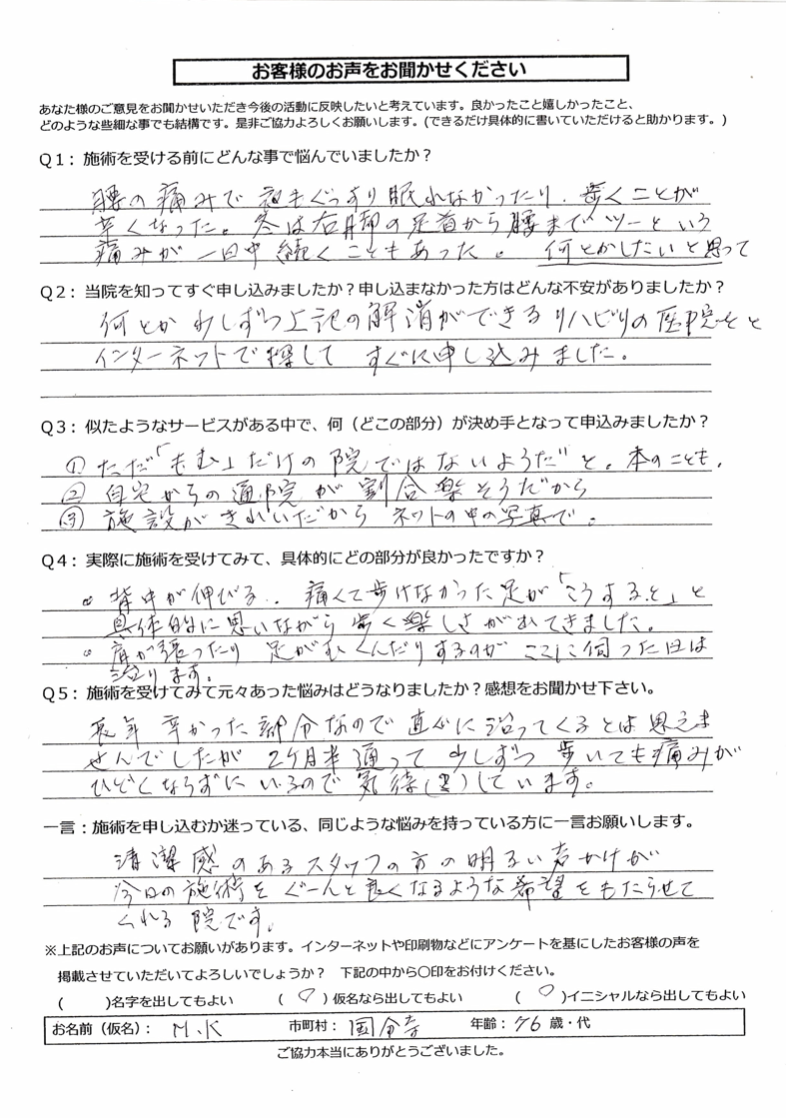 お客様のお声をお聞かせください
あなた様のご意見をお聞かせいただき今後の活動に反映したいと考えています。良かったこと嬉しかったこと、
どのような些細な事でも結構です。是非ご協力よろしくお願いします。(できるだけ具体的に書いていただけると助かります。)
Q1：施術を受ける前にどんな事で悩んでいましたか？
腰の痛みで夜もぐっすり眠れなかったり、歩くことが
辛くなった。冬は右脚の足首から腰までツーという
痛みが一日中続くこともあった。何とかしたいと思って
Q2：当院を知ってすぐ申し込みましたか？申し込まなかった方はどんな不安がありましたか？
何とか少しずつ上記の解消ができるリハビリの医院をと
インターネットで探してすぐに申し込みました。
Q3：似たようなサービスがある中で、何（どこの部分）が決め手となって申込みましたか？
① ただ「もむ」だけの院ではないようだ"と。本のことも。
② 自宅からの通院が割合楽そうだから
③ 施設がきれいだから ネットの中の写真で。
Q4：実際に施術を受けてみて、具体的にどの部分が良かったですか？
。背中が伸びる.. 痛くて歩けなかった足が「こうすると」と
具体的に思いながら歩く楽しさがでてきました。
。肩が張ったり 足がむくんだりするのが ここに伺った日は
治ります。
Q5：施術を受けてみて元々あった悩みはどうなりましたか？感想をお聞かせ下さい。
長年辛かった部分なので直ぐに治ってくるとは思えま
せんでしたが 2ケ月半通って 少しずつ 歩いても痛みが
ひどくならずにいるので気待しています。
一言：施術を申し込むか迷っている、同じような悩みを持っている方に一言お願いします。
清潔感のあるスタッフの方の明るい声かけが
今日の施術をぐーんと良くなるような希望をもたらせて
くれる院です。
※上記のお声についてお願いがあります。インターネットや印刷物などにアンケートを基にしたお客様の声を
掲載させていただいてよろしいでしょうか？ 下記の中から〇印をお付けください。
( )名字を出してもよい (○)仮名なら出してもよい (○)イニシャルなら出してもよい
お名前（仮名）： M.K 市町村：国分寺 年齢：76 歳・代
ご協力本当にありがとうございました。